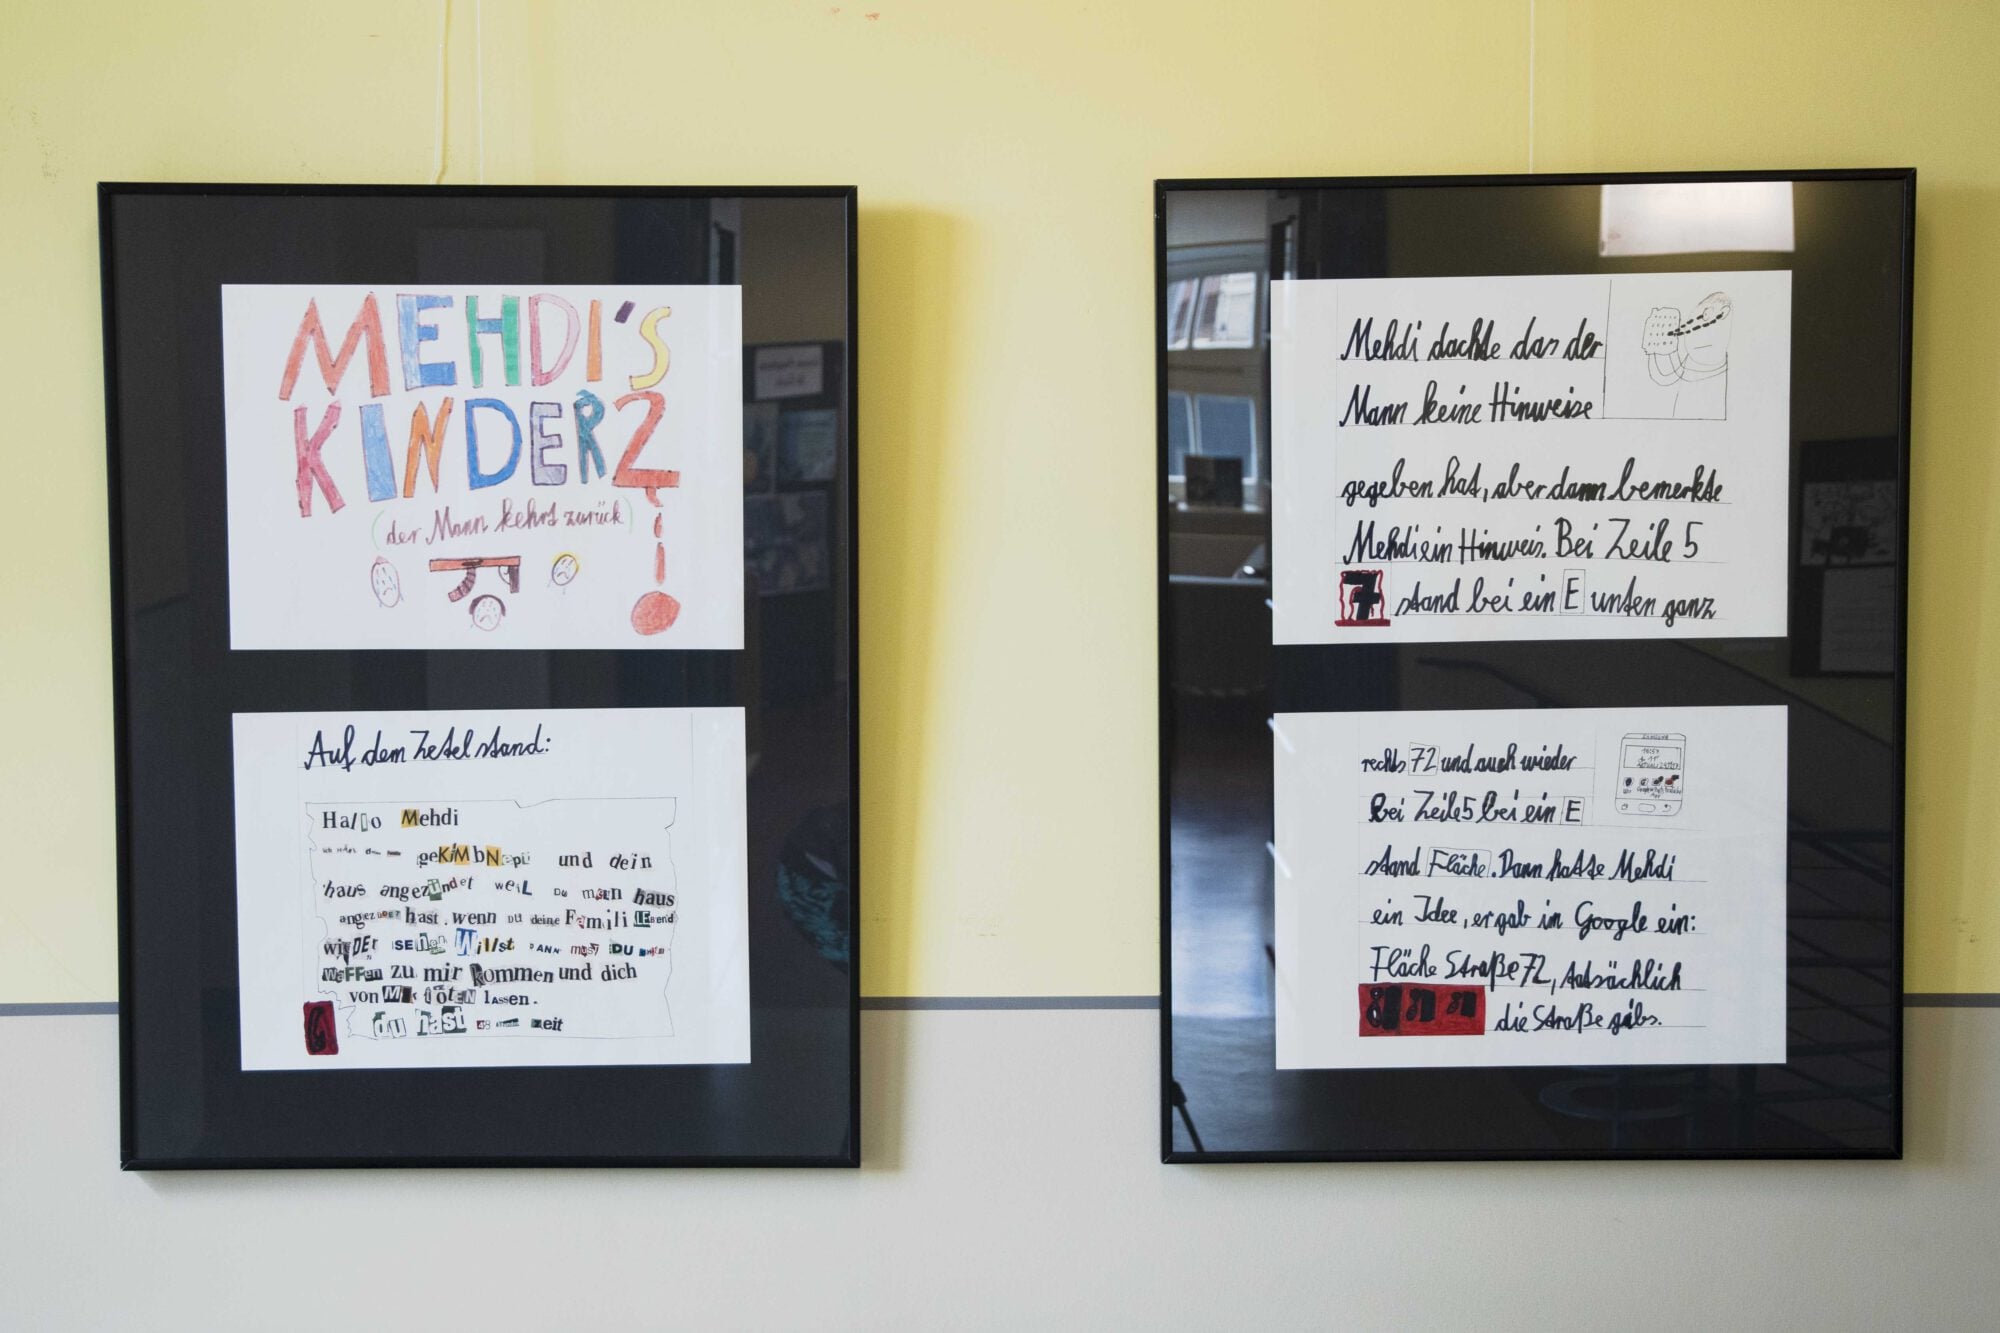 MEHDI'S
KINDER2
(der Mann kehrt zurück)
Auf dem Zetel stand:
Hallo Mehdi
geKiMbNepü und dein
haus angezündet weiL Du mein haus
angezündet hast. wenn DU deine Famili LEbend
wieDEr SEHen Willst DANN musst DU
WaFFen zu mir kommen und dich
von Mir töten lassen.
6
du hast 48 zeit
Mehdi dachte das der
Mann keine Hinweise
gegeben hat, aber dann bemerkte
Mehdi ein Hinweis. Bei Zeile 5
7 stand bei ein E unten ganz
rechts 72 und auch wieder
Bei Zeile 5 bei ein E
stand Fläche. Dann hatte Mehdi
ein Idee, er gab in Google ein:
Fläche Straße 72, tatsächlich
die Straße gibs.
SAMSUNG
16:57